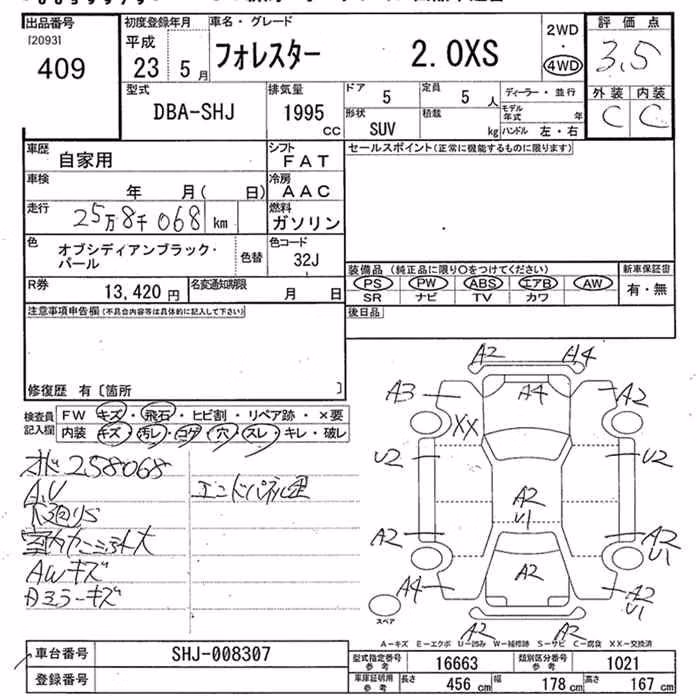 出品番号 初度登録年月 車名・グレード 評価点
[2093]
409
平成 23年 5月 フォレスター 2.0XS 2WD・4WD 3.5
型式 排気量 ドア 定員 ディーラー・並行 外装 内装
DBA-SHJ 1995 cc 5 5人 モデル年式 年 C C
形状 積載 ハンドル 左・右
SUV kg
車歴 自家用 シフト FAT セールスポイント(正常に機能するものに限ります)
車検 年 月( 日) 冷房 AAC
走行 25万8千068 km 燃料 ガソリン
色 オブシディアンブラック・パール 色替 色コード 32J
装備品(純正品に限り○をつけてください) 新車保証書
PS PW ABS エアB AW 有・無
SR ナビ TV カワ
R券 13,420円 名変通知期限 月 日
後日品
注意事項申告欄(不具合内容等は具体的に記入して下さい)
修復歴 有〔箇所 〕
検査員記入欄 FW キズ・飛石・ヒビ割・リペア跡・×要
内装 キズ・汚レ・コゲ・穴・スレ・キレ・破レ
オド258068
A,U エンドパネル歪
下廻りS
AWキズ
ドミラーキズ
A2 A4
A3 A4 A2
XX
U2 U2
A2
U1
A2 A2
U1
A2
A4 A2
U1
スペア
A2 A2
A-キズ E-エクボ U-凹み W-補修跡 S-サビ C-腐食 XX-交換済
車台番号 SHJ-008307
登録番号
型式指定番号 参考 16663 類別区分番号 参考 1021
車庫証明用 参考 長さ 456 cm 幅 178 cm 高さ 167 cm